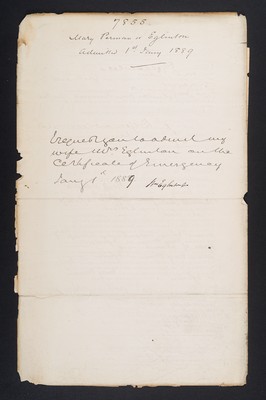 7855.
Mary Perman or Eglinton
Admitted 1st Jany 1889
I request you to admit my
wife Mrs Eglinton on the
Certificate of Emergency
Jany 1st 1889 Wm Eglinton